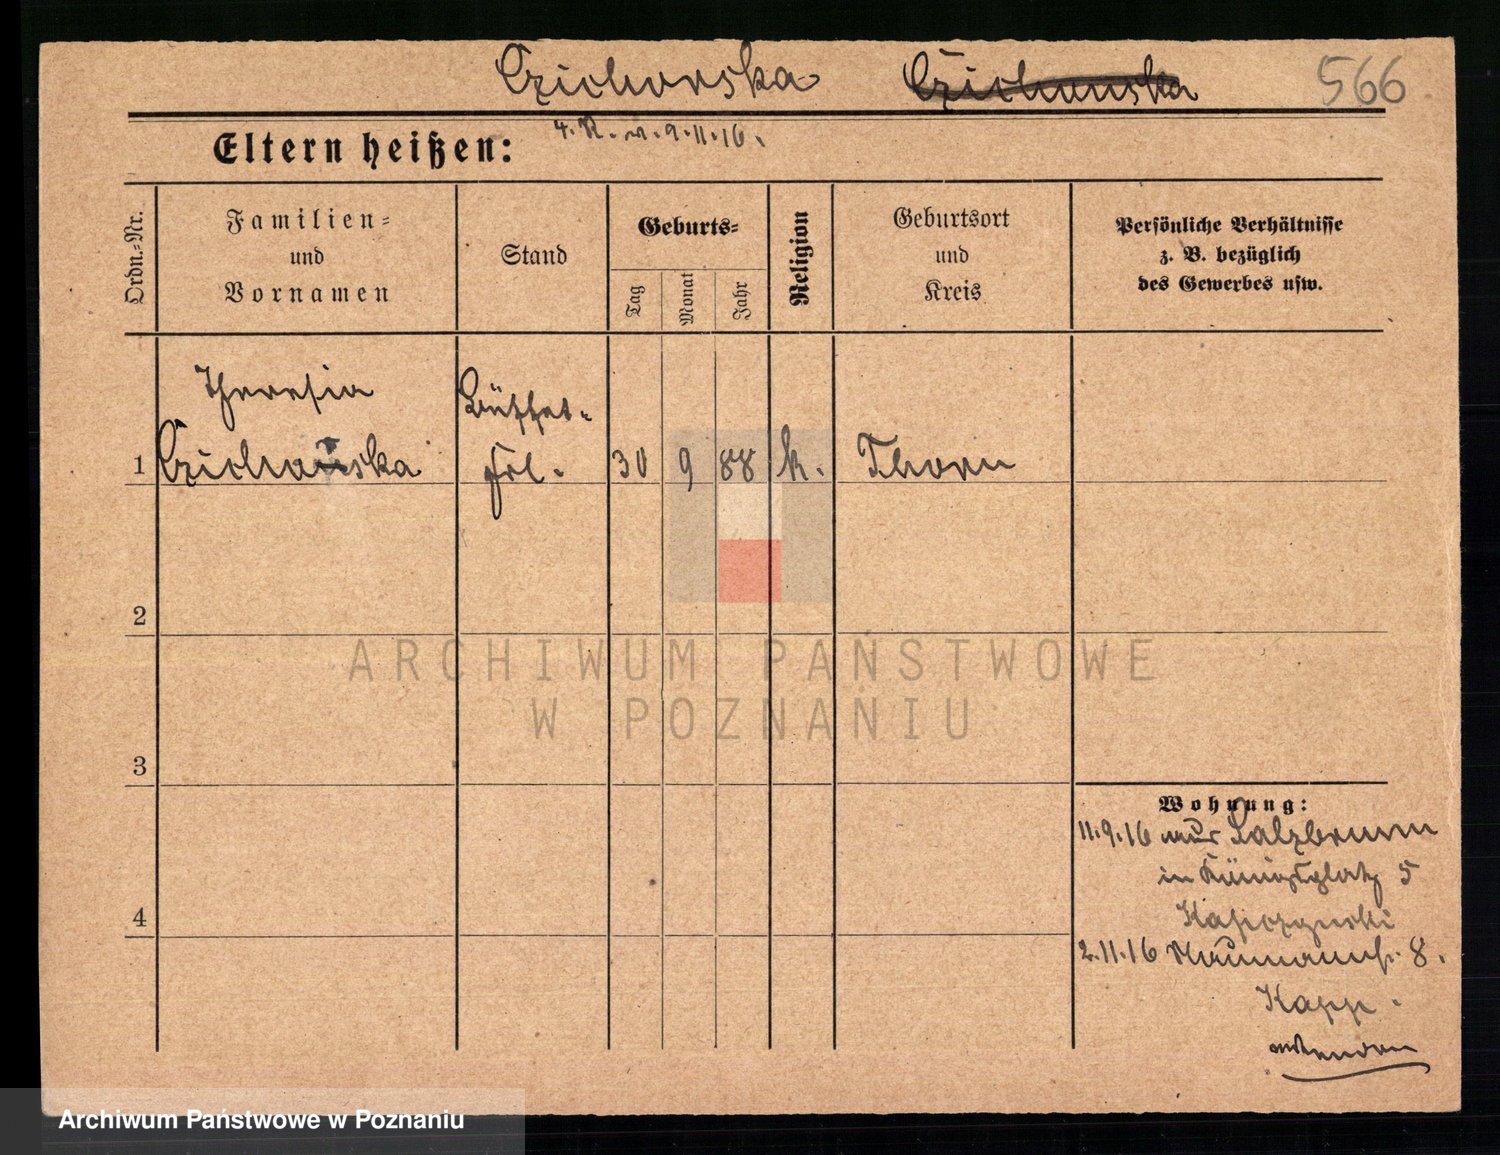 Czichorska Czichonska 566
Eltern heißen: 4. R. v. 9.11.16.
Ordn.-Nr.
Familien-
und
Vornamen
Stand
Geburts-
Tag
Monat
Jahr
Religion
Geburtsort
und
Kreis
Persönliche Verhältnisse
z. B. bezüglich
des Gewerbes usw.
Theresia Büffet-
1 Czichorska Frl. 30 9 88 k. Thorn
2
3
4
Wohnung:
11.9.16 aus Salzbrunn
in Königsplatz 5
2.11.16 Naumannstr. 8.
Kapp.
ARCHIWUM PAŃSTWOWE
W POZNANIU
Archiwum Państwowe w Poznaniu